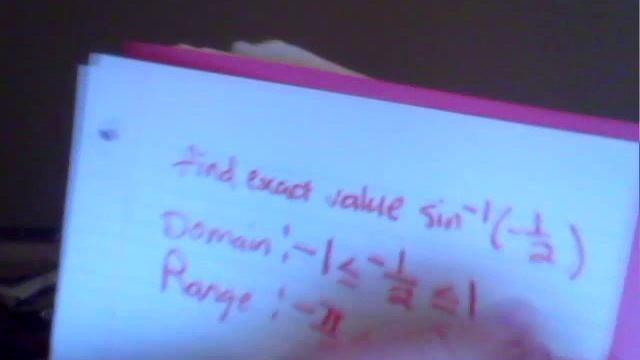 find exact value sin⁻¹(-1/2)
Domain: -1 ≤ -1/2 ≤ 1
Range: -π